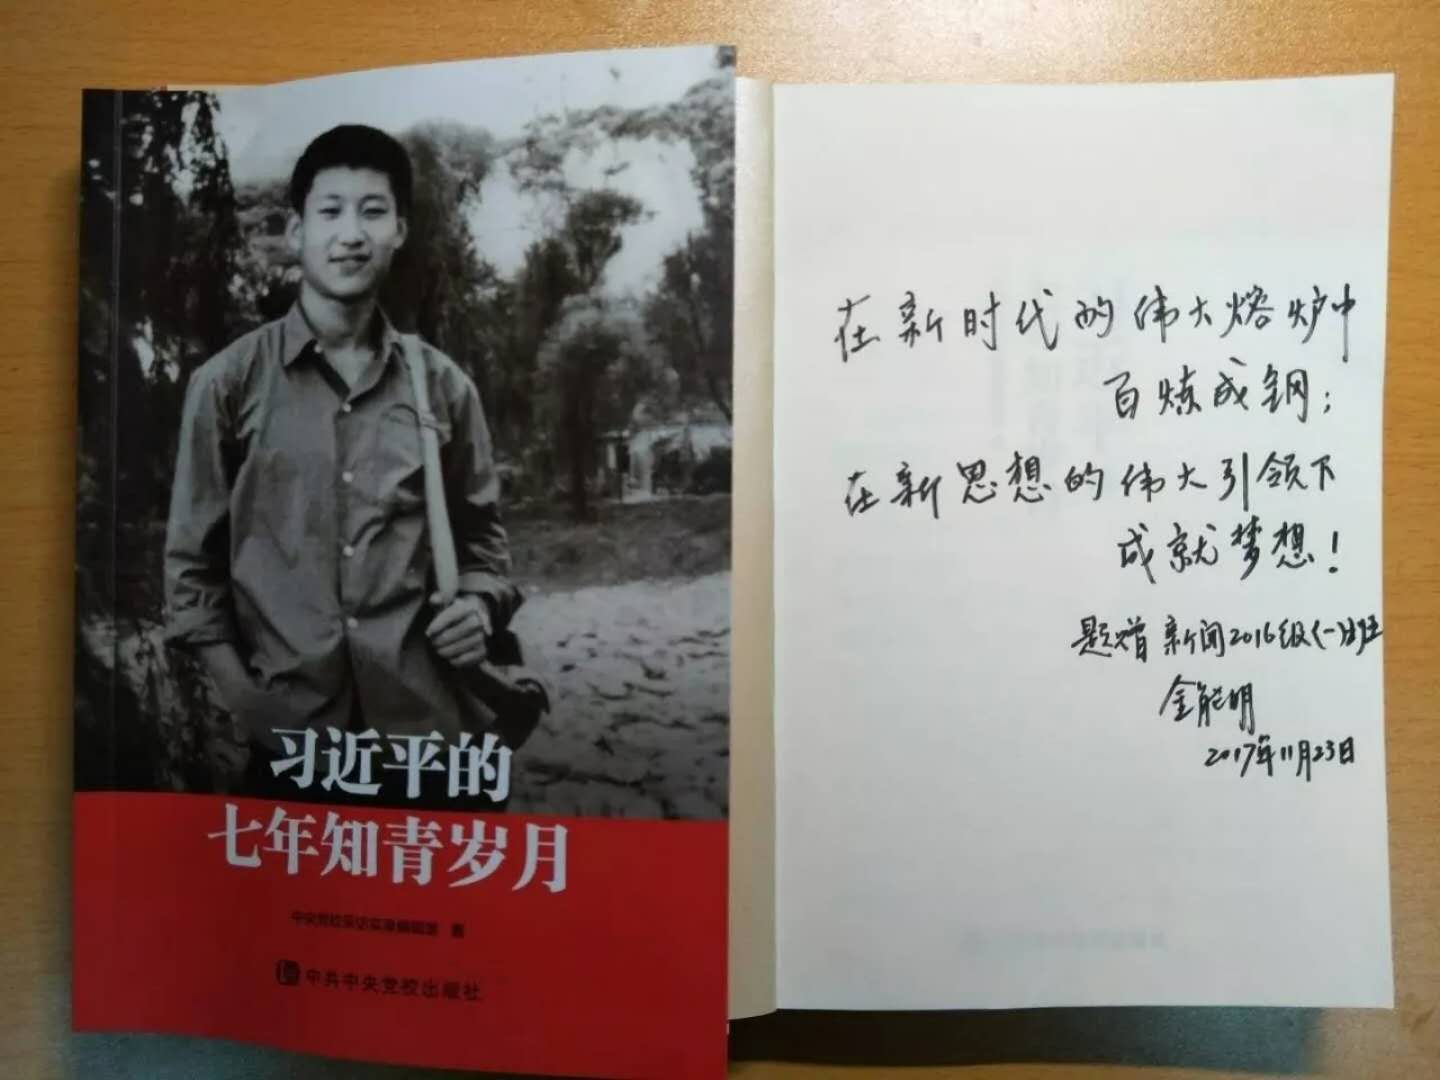 习近平的
七年知青岁月
中央党校采访实录编辑室 著
中共中央党校出版社
在新时代的伟大熔炉中
百炼成钢；
在新思想的伟大引领下
成就梦想！
题赠 新闻2016级(一)班
金能明
2017年11月23日